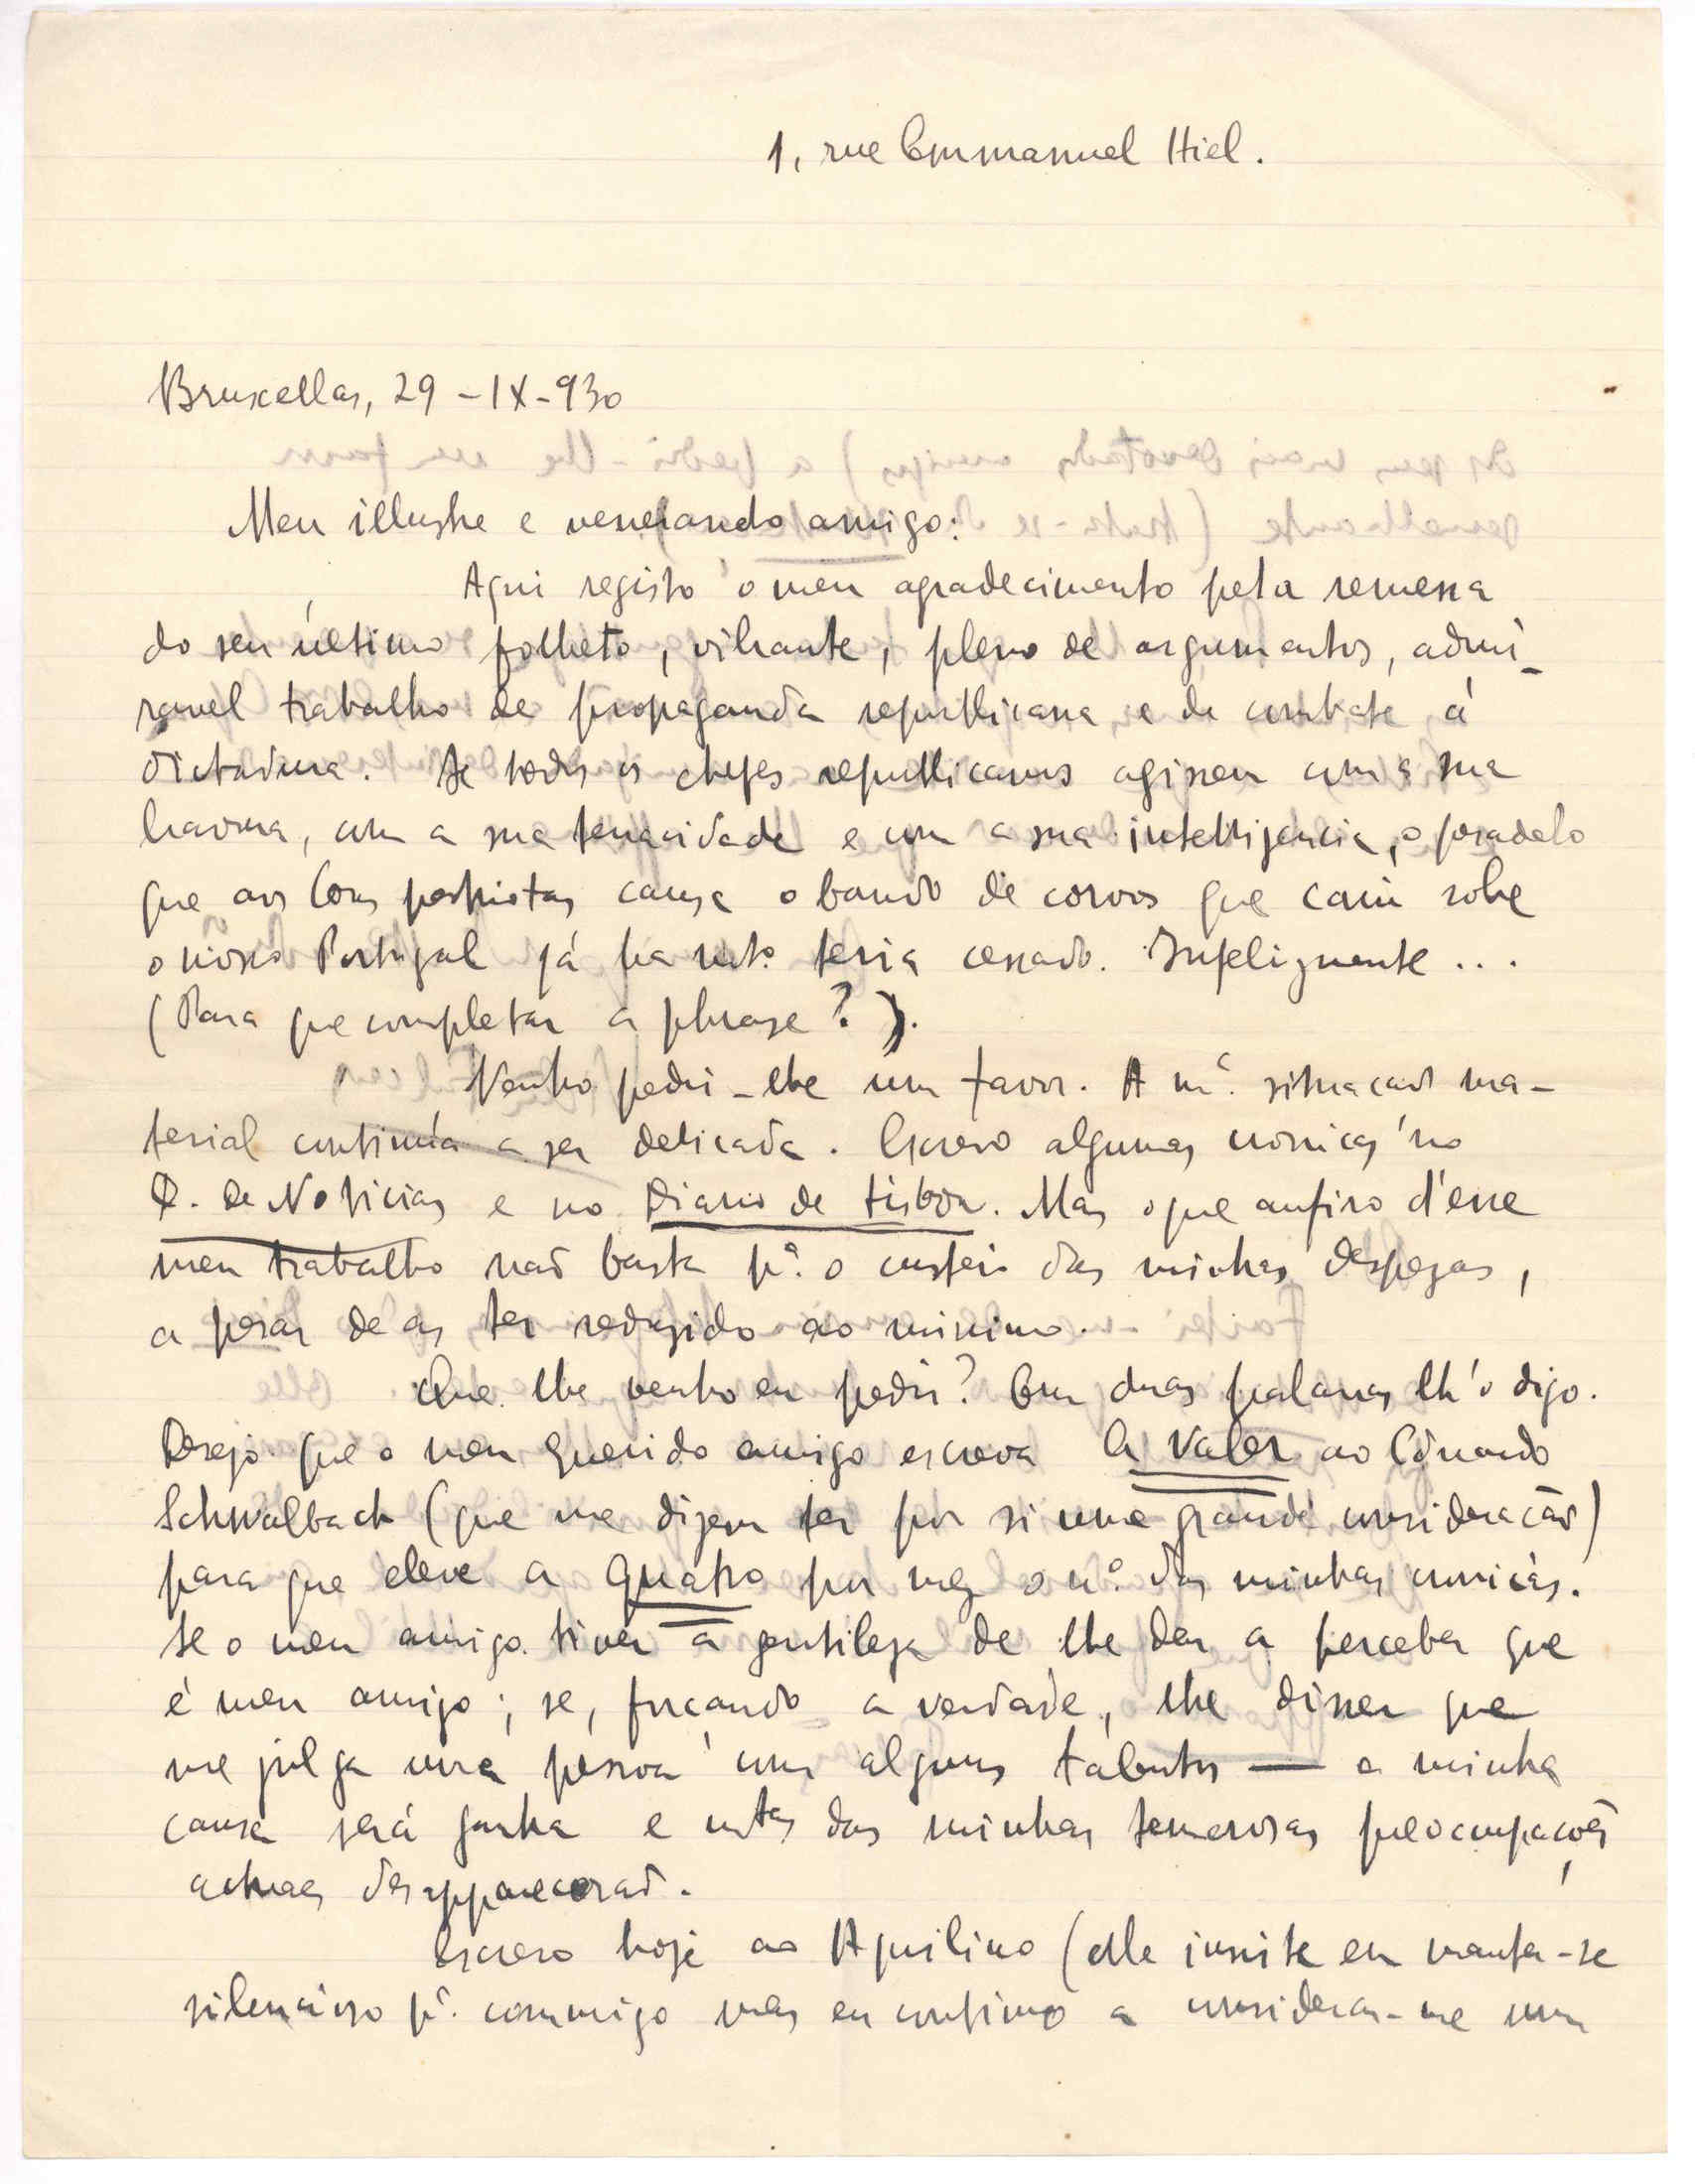 1, rue Emmanuel Hiel.
Bruxellas, 29 - IX - 930
Meu illustre e venerando amigo:
Aqui registo o meu agradecimento pela remessa
do seu último folheto, vibrante, pleno de argumentos, admi-
ravel trabalho de propaganda republicana e de combate á
dictadura. Se todos os chefes republicanos agissem com a sua
bravura, com a sua tenacidade e com a sua intelligencia, o pesadelo
que aos bons patriotas causa o bando de corvos que caiu sobre
o nosso Portugal já ha mto. teria cessado. Infelizmente...
(Para que completar a phrase?).
Venho pedir-lhe um favor. A mª. situação ma-
terial continúa a ser delicada. Escrevo algumas cronicas no
D. de Noticias e no Diario de Lisboa. Mas o que aufiro d'esse
meu trabalho não basta pª. o custeio das minhas despezas,
a pesar de as ter reduzido ao minimo.
Que lhe venho eu pedir? Em duas palavras lh'o digo.
Desejo que o meu querido amigo escreva a valer ao Eduardo
Schwalbach (que me dizem ter por si uma grande consideração)
para que eleve a quatro por mez o nº. das minhas cronicas.
Se o meu amigo tiver a gentileza de lhe dar a perceber que
é meu amigo; se, forçando a verdade, lhe disser que
me julga uma pessoa com alguns talentos — a minha
causa será ganha e mtas das minhas temerosas preocupações
actuaes desapparecerão.
Escrevo hoje ao Aquilino (elle insiste em manter-se
silencioso pª. commigo mas eu continuo a considerar-me um